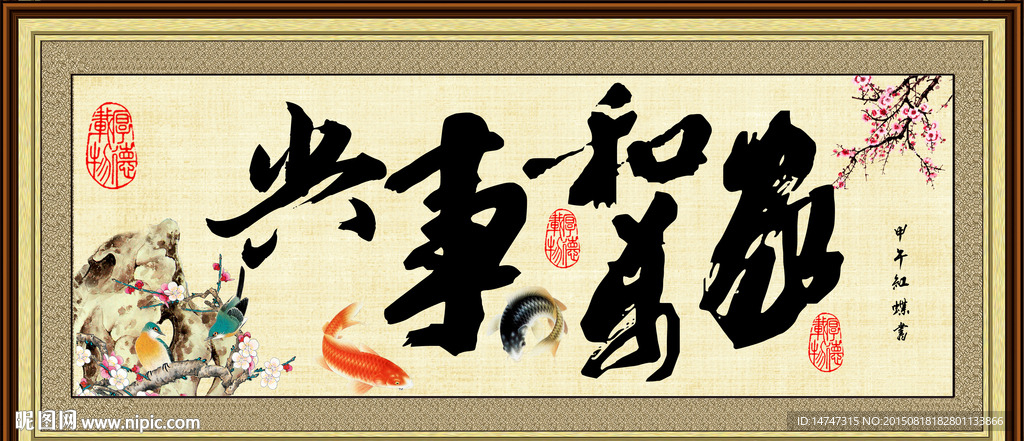 家和萬事兴
甲午紅蝶書
厚德載物
厚德載物
厚德載物
昵图网 www.nipic.com
ID:14747315 NO:20150818182801133866